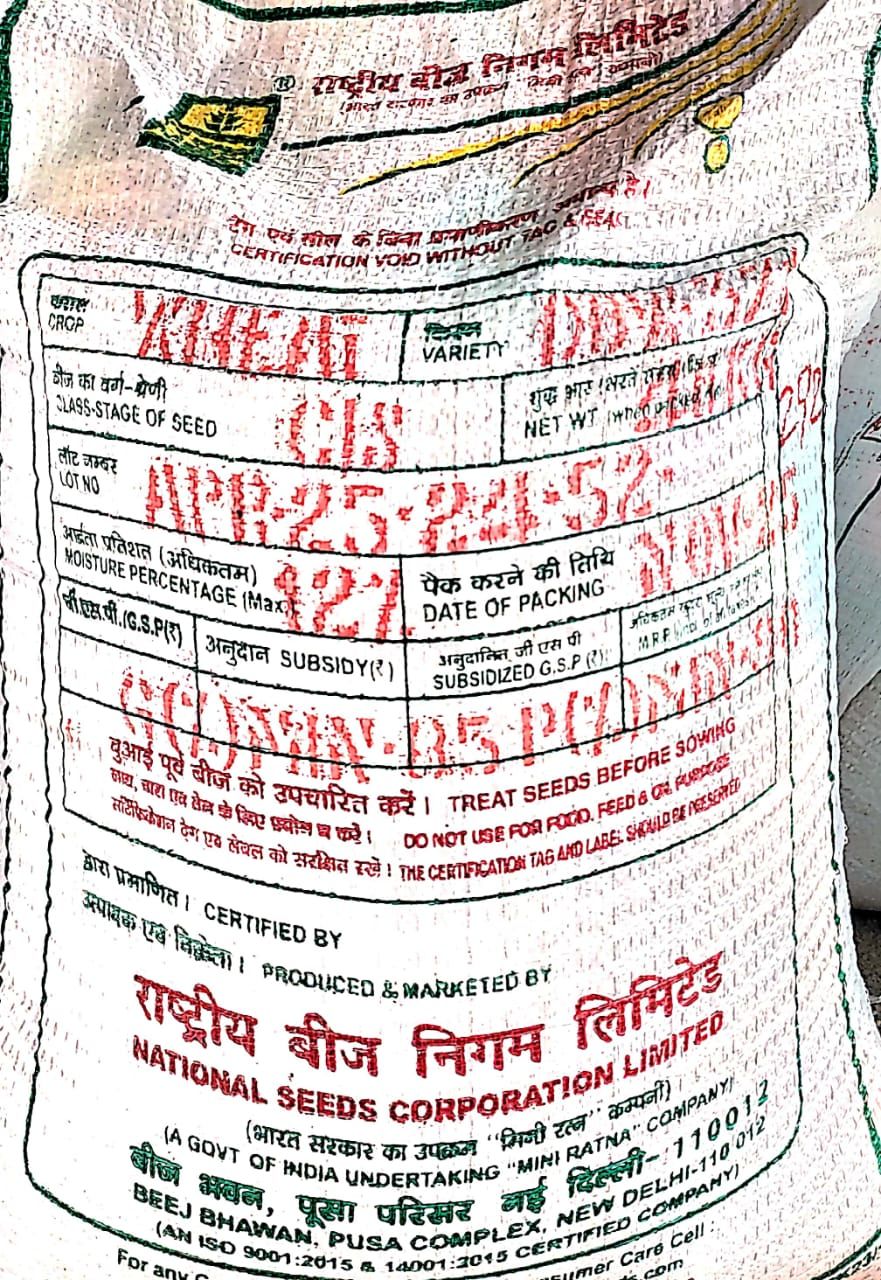 ® राष्ट्रीय बीज निगम लिमिटेड
टैग एवं सील के बिना प्रमाणीकरण अमान्य है।
CERTIFICATION VOID WITHOUT TAG & SEAL
फसल
CROP WHEAT
किस्म
VARIETY
बीज का वर्ग-श्रेणी
CLASS-STAGE OF SEED C/S
शुद्ध भार
NET WT
292
लौट नम्बर
LOT NO APR-25-24-52
आर्द्रता प्रतिशत (अधिकतम)
MOISTURE PERCENTAGE (Max) 12%
पैक करने की तिथि
DATE OF PACKING
जी.एस.पी.(G.S.P(₹)
अनुदान SUBSIDY(₹)
अनुदानित जी एस पी
SUBSIDIZED G.S.P (₹)
M.R.P
बुआई पूर्व बीज को उपचारित करें। TREAT SEEDS BEFORE SOWING
खाद्य, चारा एवं तेल के लिए प्रयोग न करें। DO NOT USE FOR FOOD, FEED & OIL PURPOSE
सर्टिफिकेशन टैग एवं लेबल को सुरक्षित रखें। THE CERTIFICATION TAG AND LABEL SHOULD BE PRESERVED
द्वारा प्रमाणित। CERTIFIED BY
उत्पादक एवं विक्रेता। PRODUCED & MARKETED BY
राष्ट्रीय बीज निगम लिमिटेड
NATIONAL SEEDS CORPORATION LIMITED
(भारत सरकार का उपक्रम "मिनी रत्न" कम्पनी)
(A GOVT OF INDIA UNDERTAKING "MINI RATNA" COMPANY)
बीज भवन, पूसा परिसर नई दिल्ली-110012
BEEJ BHAWAN, PUSA COMPLEX, NEW DELHI-110 012
(AN ISO 9001:2015 & 14001:2015 CERTIFIED COMPANY)
For any
Care Cell :